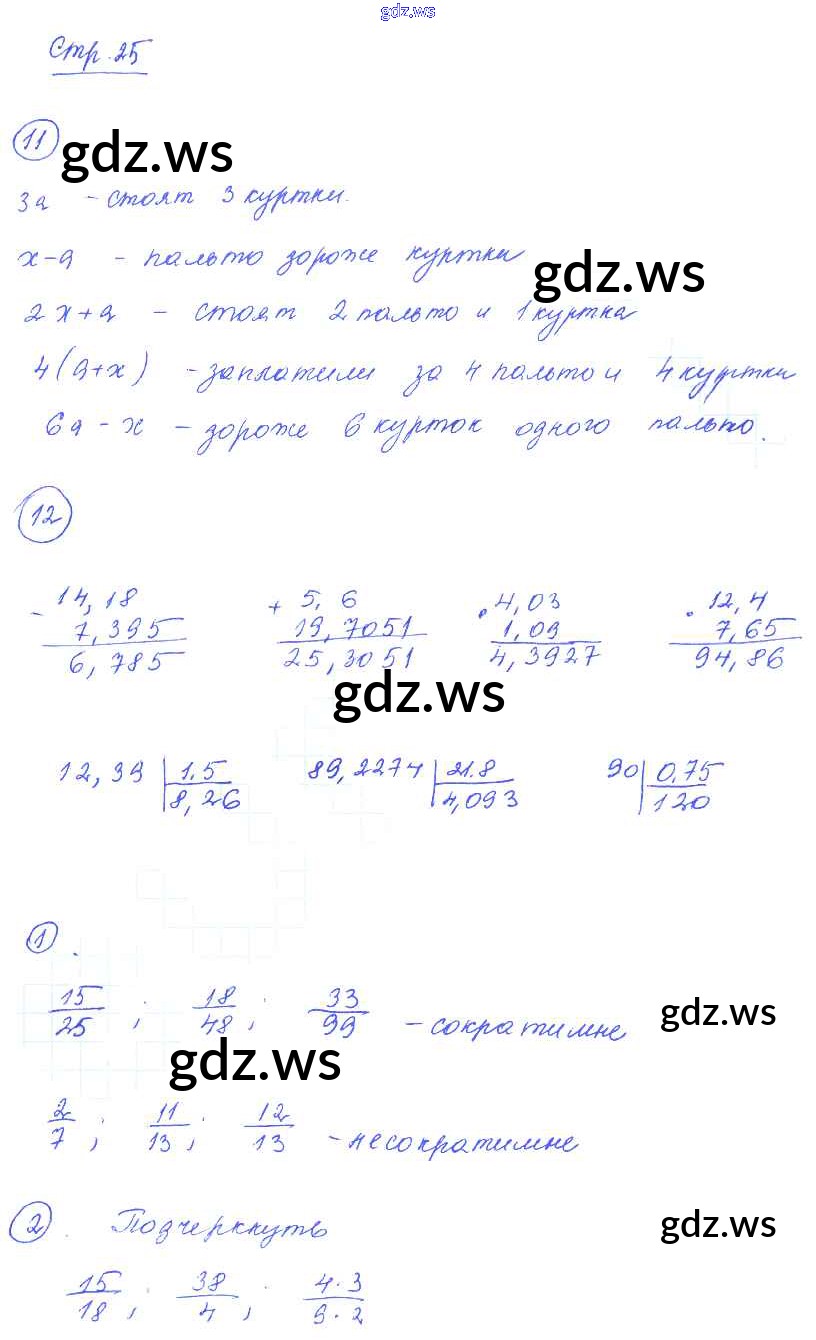 gdz.ws
Стр. 25
11 gdz.ws
3а - стоят 3 куртки.
х-а - пальто дороже куртки
gdz.ws
2х+а - стоят 2 пальто и 1 куртка
4(а+х) - заплатили за 4 пальто и 4 куртки
6а - х - дороже 6 курток одного пальто.
12
- 14,18 + 5,6 · 4,03 · 12,4
7,395 19,7051 1,09 7,65
6,785 25,3051 4,3927 94,86
gdz.ws
12,39 1,5 89,2274 21.8 90 0,75
8,26 4,093 120
1.
15/25 ; 18/48 ; 33/99 - сократимые
gdz.ws
gdz.ws
2/7 ; 11/13 ; 12/13 - несократимые
2. Подчеркнуть
gdz.ws
15/18 ; 38/4 ; 4·3/9·2